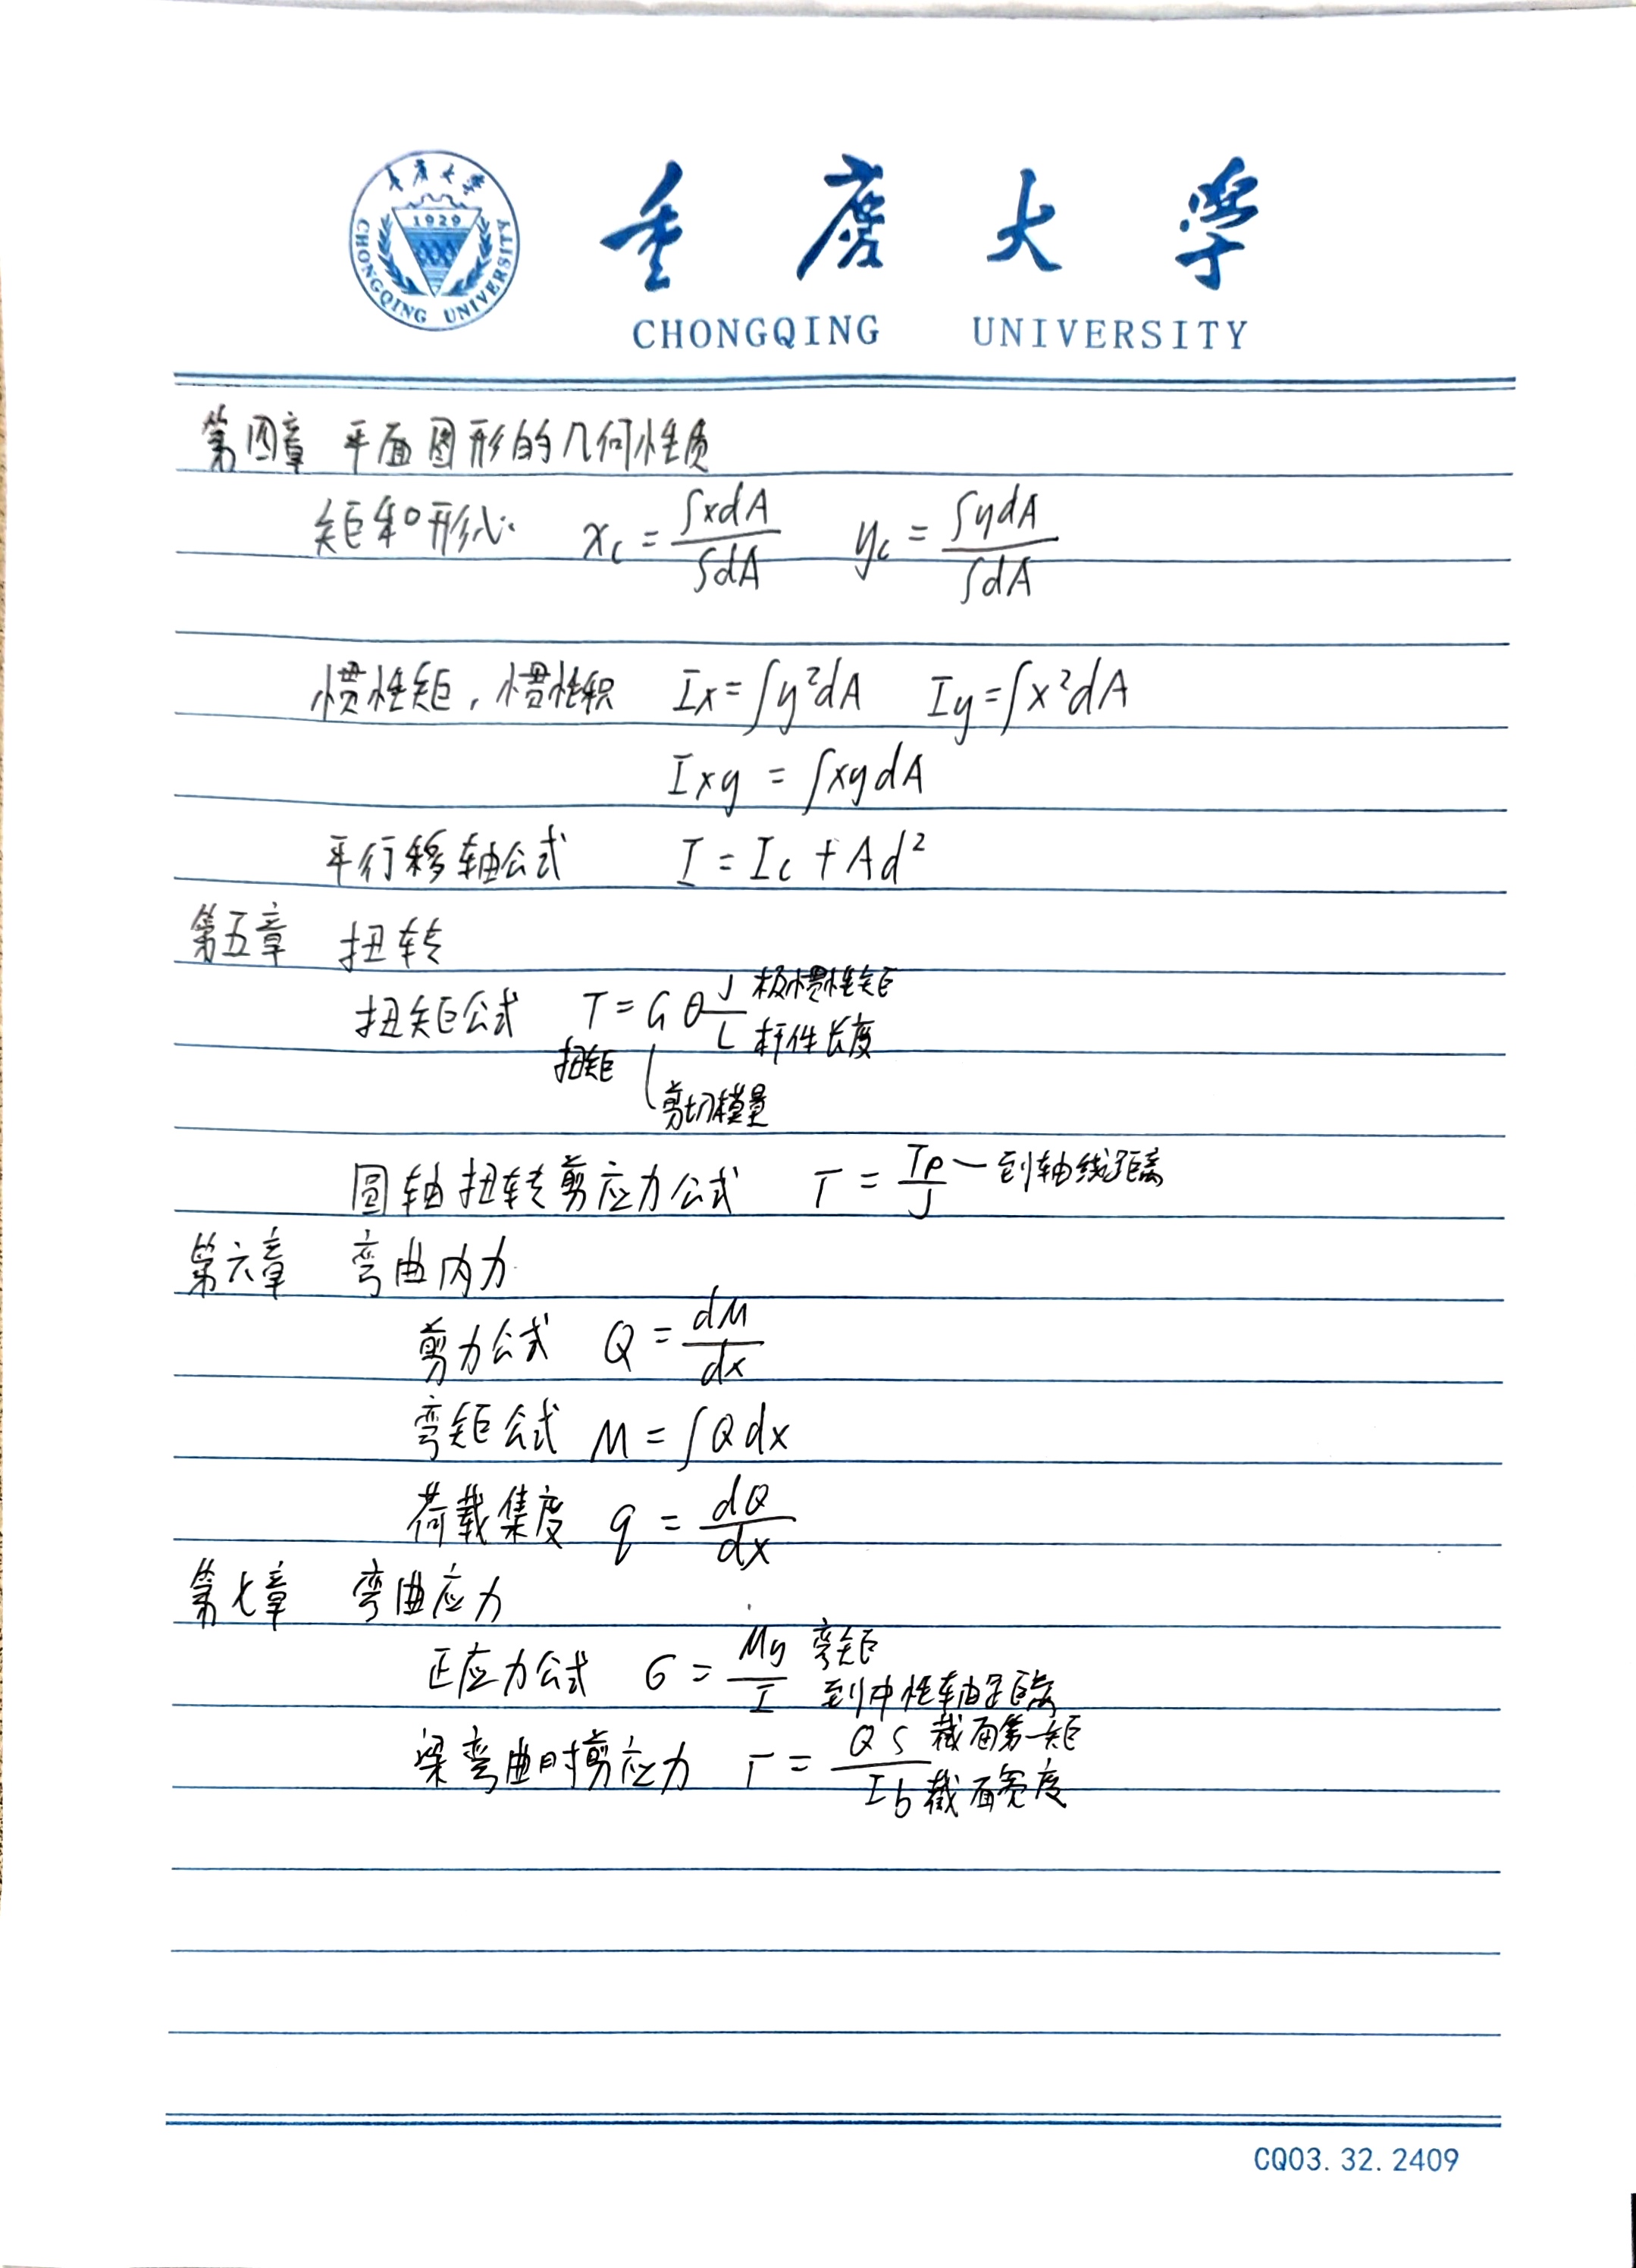 重庆大学
1929
CHONGQING UNIVERSITY
重庆大学
CHONGQING UNIVERSITY
第四章 平面图形的几何性质
矩和形心: x_c = ∫xdA / ∫dA y_c = ∫ydA / ∫dA
惯性矩,惯性积 Ix = ∫y²dA Iy = ∫x²dA
Ixy = ∫xydA
平行移轴公式 I = Ic + Ad²
第五章 扭转
扭矩公式 T = Gθ J/L 极惯性矩 杆件长度
扭矩 剪切模量
圆轴扭转剪应力公式 τ = Tρ/J 到轴线距离
第六章 弯曲内力
剪力公式 Q = dM/dx
弯矩公式 M = ∫Qdx
荷载集度 q = dQ/dx
第七章 弯曲应力
正应力公式 σ = My/I 弯矩
到中性轴距离
梁弯曲时剪应力 τ = QS/Ib 截面第一矩
截面宽度
CQ03.32.2409